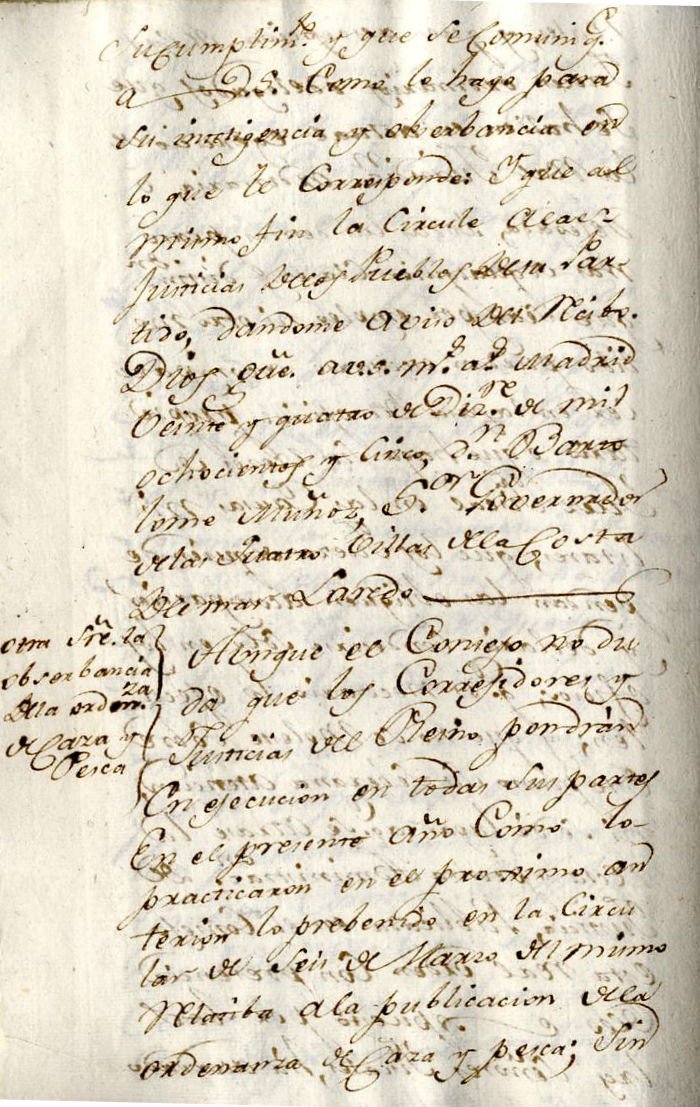 Su Cumplim.to y que se Comuniq.e
a V.S. Como lo hago para
su inteligencia y obserbancia en
lo que le Corresponde: Y que al
mismo fin la Circule a las
Justicias de los Pueblos de su Par-
tido, dandome aviso del Recibo.
Dios gũe. a V.S. m.s a.s Madrid
Veinte y quatro de Diz.re de mil
ochocientos y Cinco, D.n Barto
lome Muñoz, S.or Governador
de las Quatro Villas de la Costa
del mar. Laredo
otra sr̃e. la
obserbancia
de la orden.za
de Caza y
Pesca
Aunque el Consejo no du
da que los Corregidores y
Justicias del Reino pondrán
En ejecucion en todas sus partes
En el presente año Como lo-
practicaron en el proximo an
terior lo prebenido en la Circu
lar de Seis de Marzo del mismo
Relatiba a la publicacion de la
ordenanza de Caza y pesca; Sin